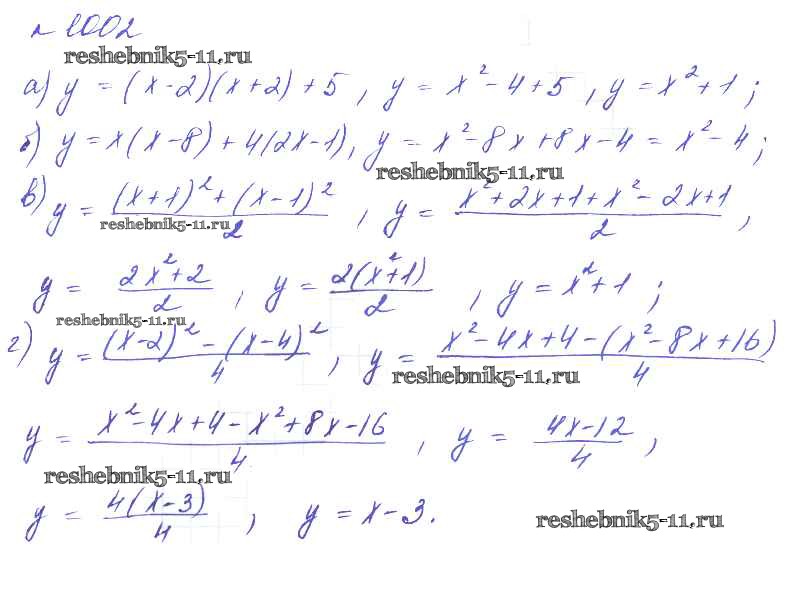 № 1002
reshebnik5-11.ru
а) y = (x-2)(x+2)+5, y = x²-4+5, y = x²+1;
б) y = x(x-8)+4(2x-1), y = x²-8x+8x-4 = x²-4;
reshebnik5-11.ru
в) y = ((x+1)²+(x-1)²)/2, y = (x²+2x+1+x²-2x+1)/2,
reshebnik5-11.ru
y = (2x²+2)/2, y = 2(x²+1)/2, y = x²+1;
reshebnik5-11.ru
г) y = ((x-2)²-(x-4)²)/4, y = (x²-4x+4-(x²-8x+16))/4
reshebnik5-11.ru
y = (x²-4x+4-x²+8x-16)/4, y = (4x-12)/4,
reshebnik5-11.ru
y = 4(x-3)/4, y = x-3.
reshebnik5-11.ru